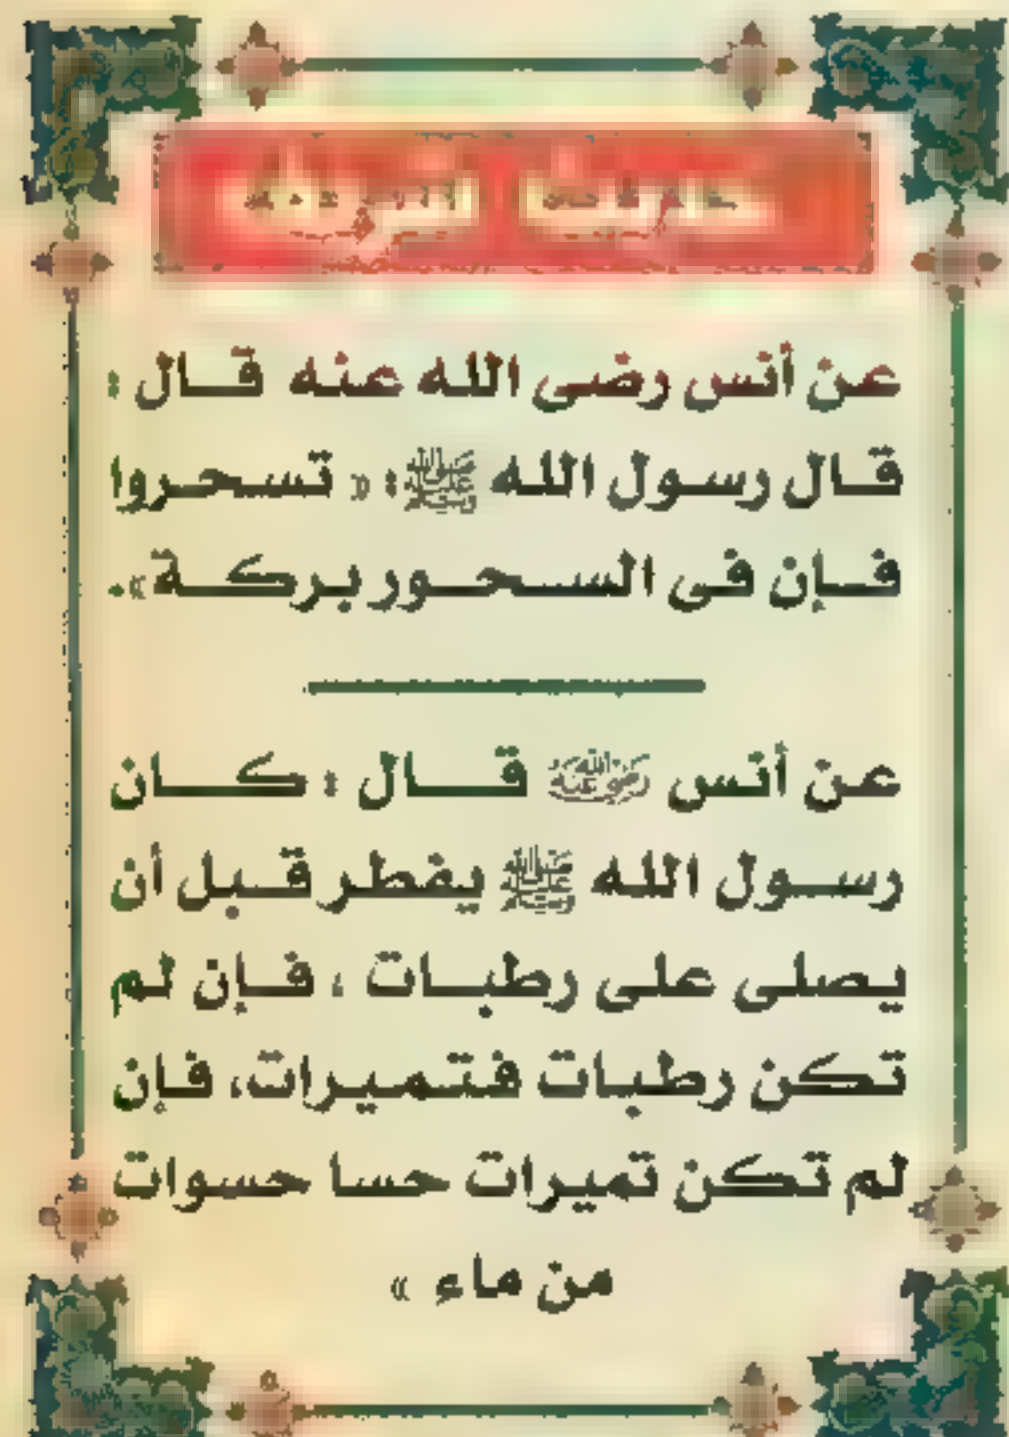 عن أنس رضى الله عنه قال :
قال رسول الله ﷺ : « تسحروا
فإن فى السحور بركة » .
عن أنس رضي الله عنه قال : كان
رسول الله ﷺ يفطر قبل أن
يصلى على رطبات ، فإن لم
تكن رطبات فتميرات، فإن
لم تكن تميرات حسا حسوات
من ماء »